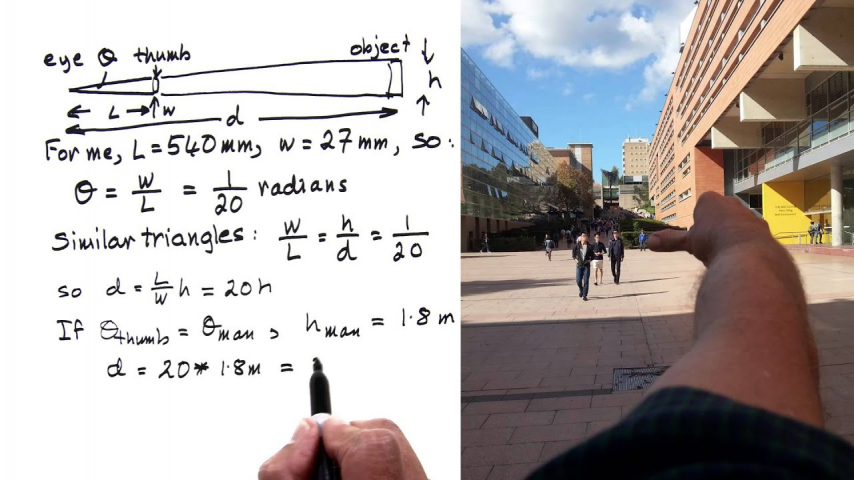 eye θ thumb object
h
← L → w
d
For me, L = 540 mm, w = 27 mm, so:
θ = w/L = 1/20 radians
Similar triangles: w/L = h/d = 1/20
so d = L/w h = 20h
If θthumb = θman, hman = 1.8 m
d = 20 * 1.8m =